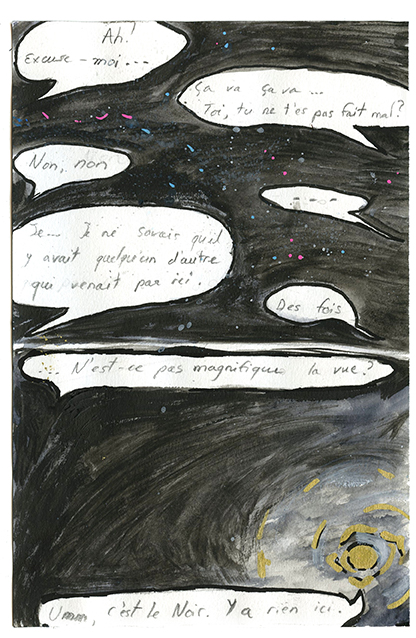 Ah!
Excuse-moi...
Ça va ça va...
Toi, tu ne t'es pas fait mal?
Non, non
...
Je... Je ne savais qu'il
y avait quelqu'un d'autre
qui venait par ici.
Des fois
... N'est-ce pas magnifique la vue?
Umm, c'est le Noir. Y a rien ici.